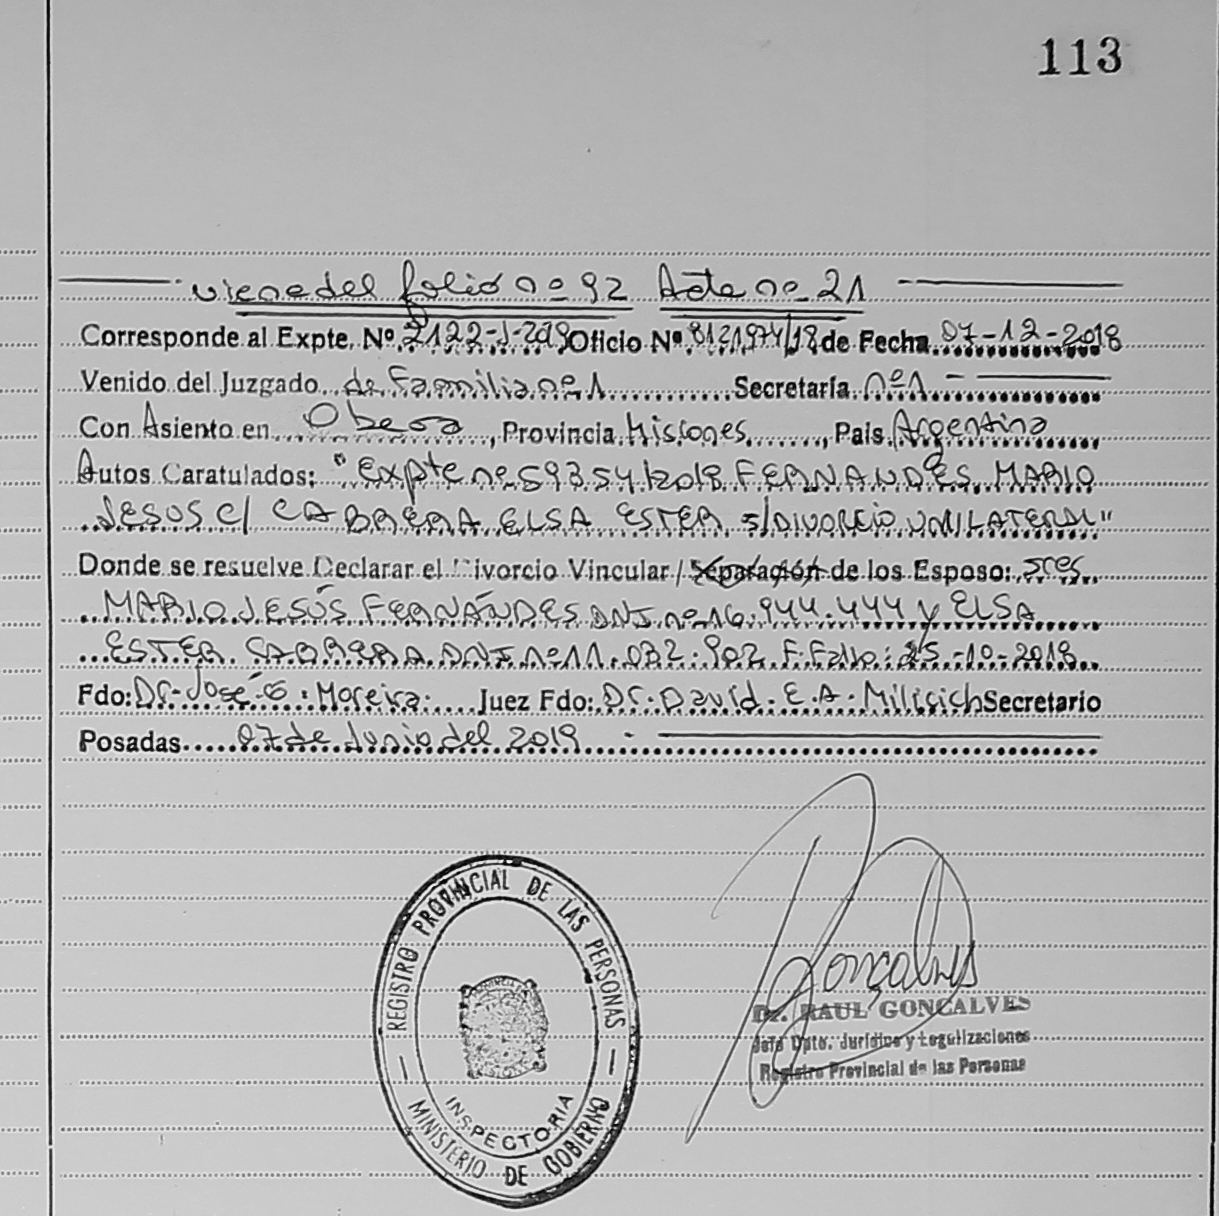 113
Viene del folio nº 92 Acta nº 21
Corresponde al Expte. Nº 2122-J-2018 Oficio Nº 8121974/18 de Fecha 07-12-2018
Venido del Juzgado de Familia nº 1 Secretaría nº 1
Con Asiento en Obera, Provincia Misiones, Pais Argentina
Autos Caratulados: "Expte nº 59354/2018 FERNANDES MARIO
JESUS C/ CABRERA ELSA ESTER S/DIVORCIO UNILATERAL"
Donde se resuelve Declarar el Divorcio Vincular / Separación de los Esposo: Sres
MARIO JESÚS FERNÁNDES DNI nº 16.944.444 y ELSA
ESTER CABRERA DNI nº 11.032.902 F. Fallo: 25-10-2018
Fdo: Dr. José G. Moreira Juez Fdo: Dr. David E. A. Milicich Secretario
Posadas 07 de Junio del 2019
REGISTRO PROVINCIAL DE LAS PERSONAS
INSPECTORIA
MINISTERIO DE GOBIERNO
Gonçalves
Dr. RAUL GONCALVES
Jefe Dpto. Jurídico y Legalizaciones
Registro Provincial de las Personas